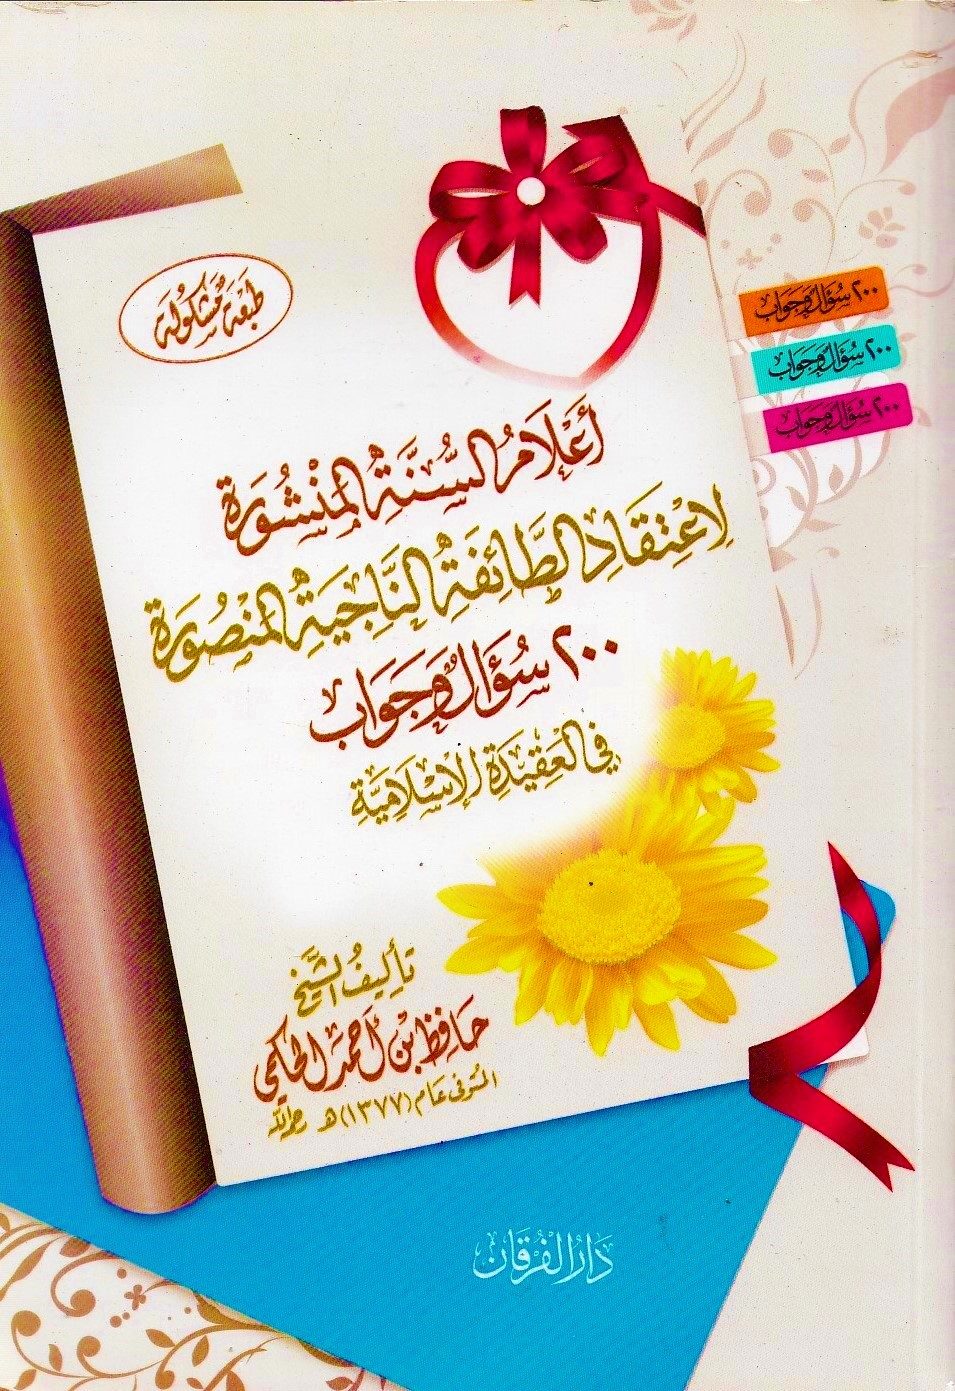 طَبْعَة مَشْكُولَة
٢٠٠ سُؤَال وَجَوَاب
٢٠٠ سُؤَال وَجَوَاب
٢٠٠ سُؤَال وَجَوَاب
أَعْلَامُ السُّنَّةِ المَنْشُورَة
لِاعْتِقَادِ الطَّائِفَةِ النَّاجِيَةِ المَنْصُورَة
٢٠٠ سُؤَال وَجَوَاب
فِي العَقِيدَةِ الإِسْلَامِيَّةِ
تَأْلِيفُ الشَّيْخِ
حَافِظ بْن أَحْمَد الحَكَمِي
المتوفى عام (١٣٧٧) هـ رحمه الله
دَارُ الفُرْقَان